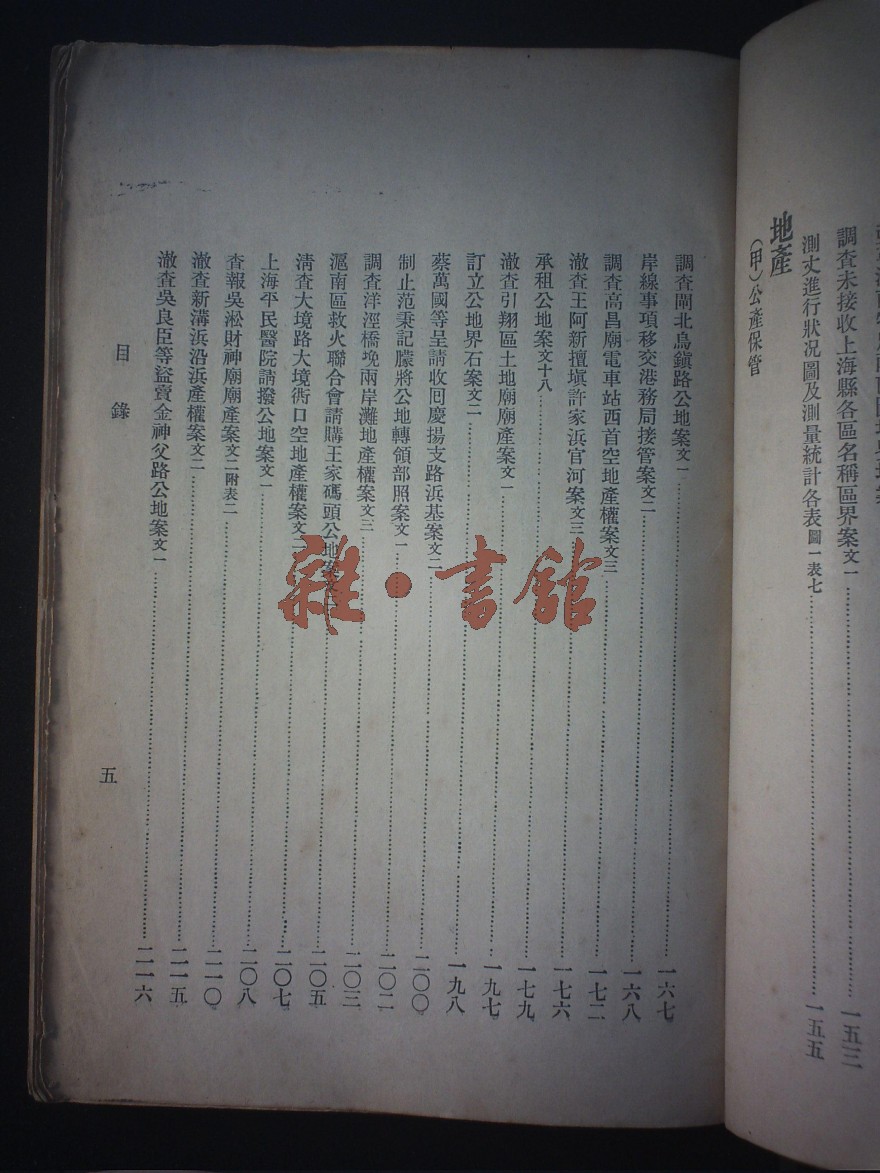 調查未接收上海縣各區名稱區界案文一……一五三
測丈進行狀况圖及測量統計各表圖一表七……一五五
地產
（甲）公產保管
調查閘北烏鎮路公地案文一……一六七
岸線事項移交港務局接管案文二……一六八
調查高昌廟電車站西首空地產權案文三……一七二
澈查王阿新擅塡許家浜官河案文三……一七六
承租公地案文十八……一七九
澈查引翔區土地廟廟產案文一……一九七
訂立公地界石案文二……一九八
蔡萬國等呈請收回慶揚支路浜基案文二……二〇〇
制止范秉記朦將公地轉領部照案文一……二〇二
調查洋涇橋堍兩岸灘地產權案文三……二〇三
滬南區救火聯合會請購王家碼頭公地案……二〇五
清查大境路大境衖口空地產權案文二……二〇七
上海平民醫院請撥公地案文一……二〇八
查報吳淞財神廟廟產案文二附表二……二一〇
澈查新溝浜沿浜產權案文二……二一五
澈查吳良臣等盜賣金神父路公地案文一……二一六
目錄
五
雜·書館